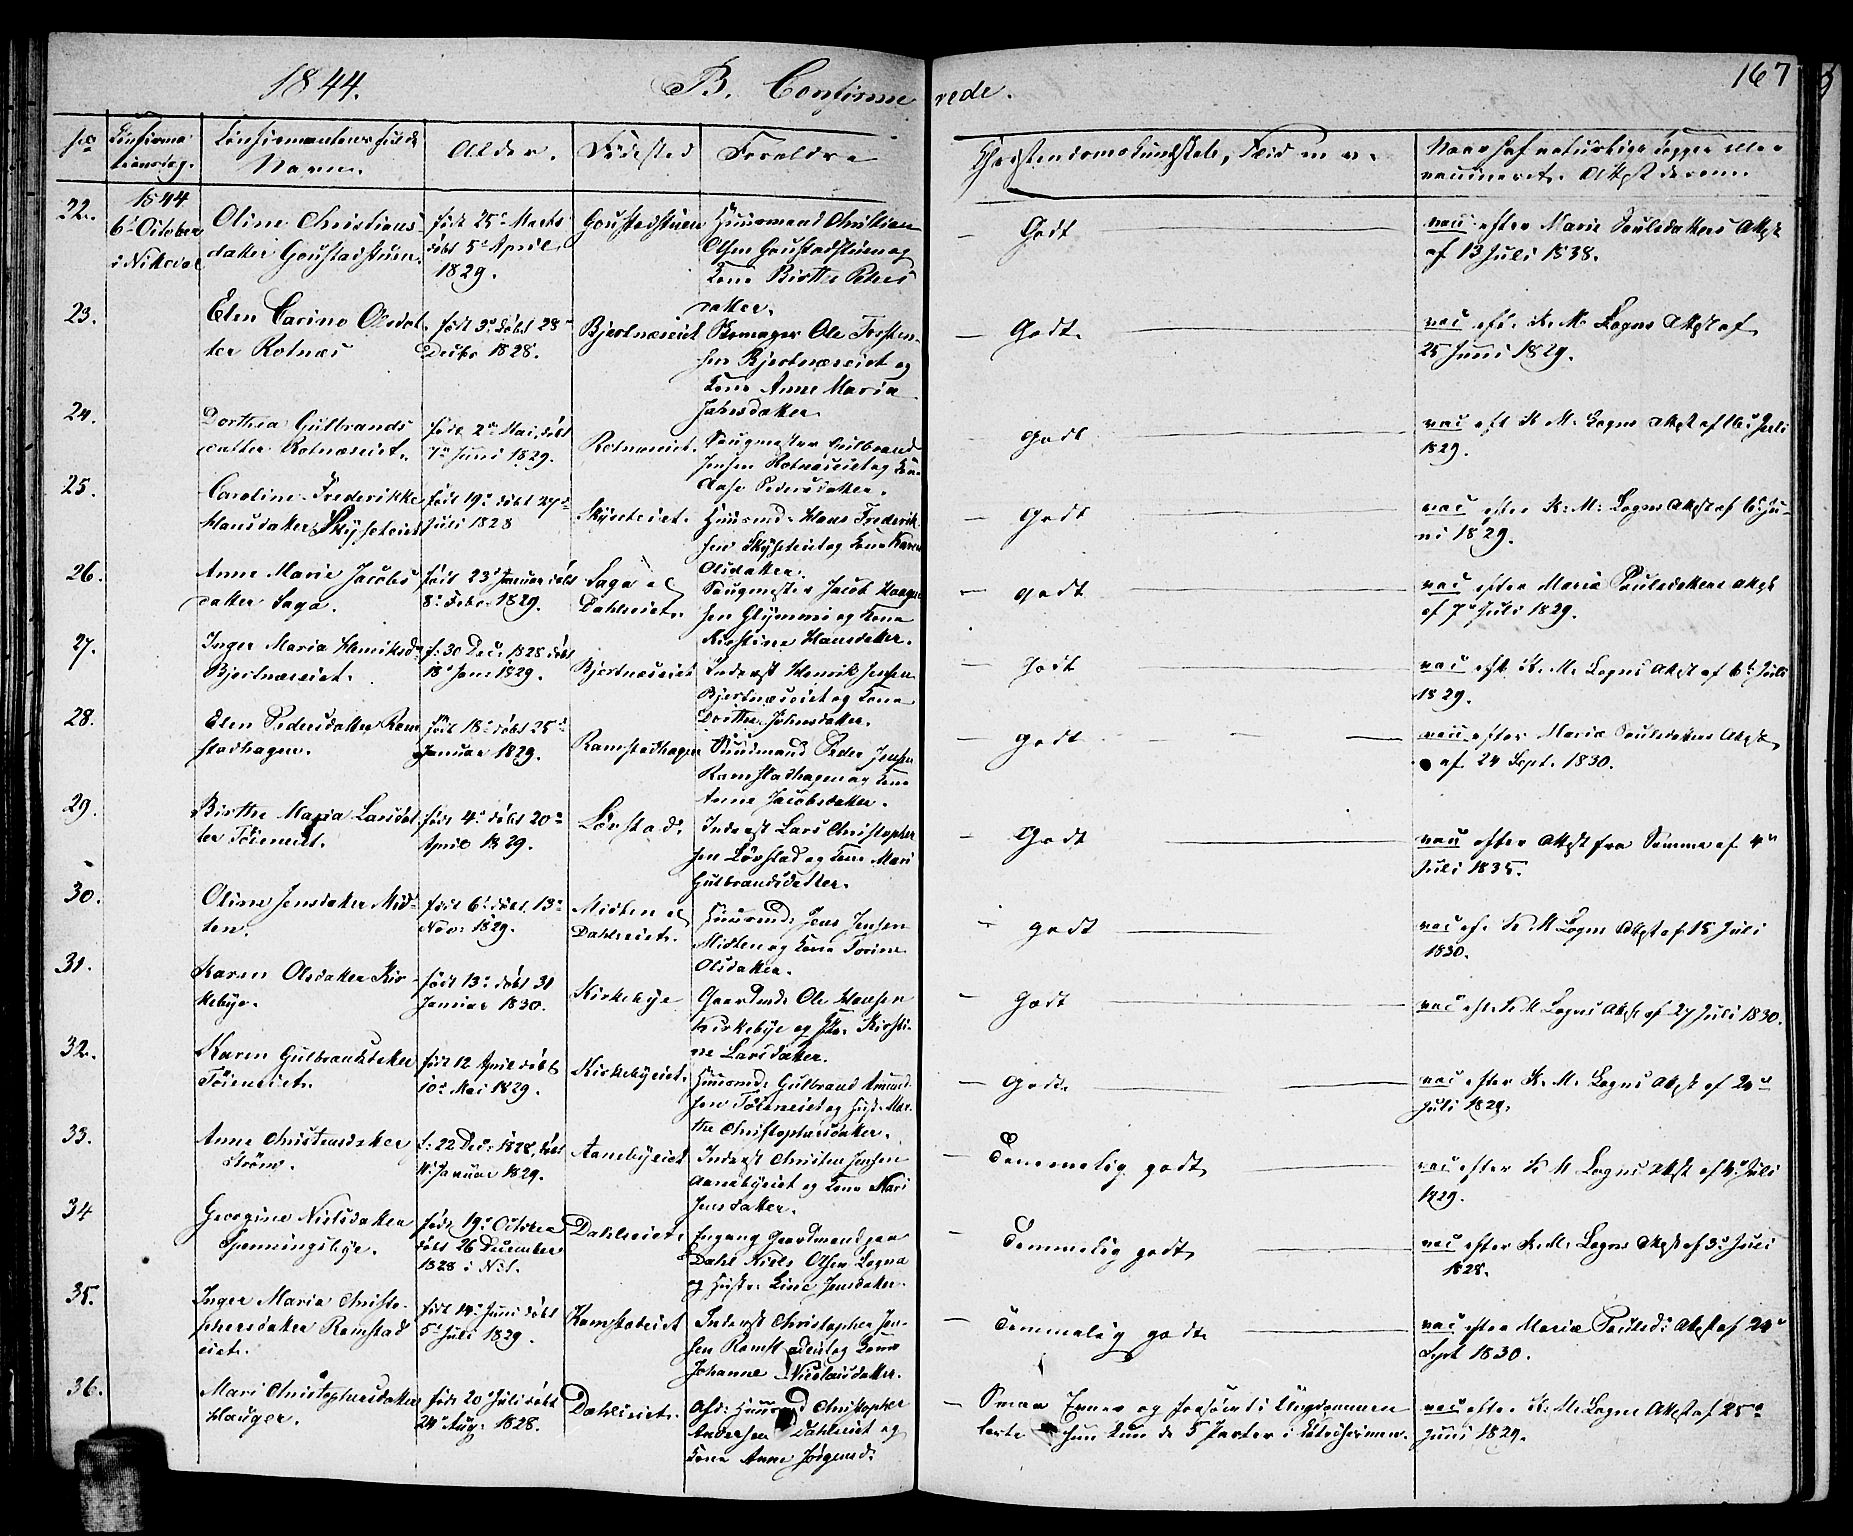 1844. B. Confirme rede. 167
No Confirma tionsdag. Confirmantens fulde Navn. Alder. Fødested Forældre Christendomskundskab, Flid m. v. Naar haf naturlige Kopper eller vaccineret. Attest derom.
22. 1844 6te October i Nitedal
Oline Christians
datter Goustadstuen
født 25de Marts
døbt 5te April
1829.
Goustadstuen
Huusmand Christian
Olsen Goustadstuen og
Kone Birthe Peders
datter.
Godt
vacc efter Marie Poulsdatters Attest
af 13 Juli 1838.
23.
Elen Carine Olsdat
ter Rotnes
født 3de døbt 28de
Decbr 1828.
Bjertnæseiet
Skomager Ole Torsten
sen Bjertnæseiet og
Kone Anne Maria
Johnsdatter.
Godt.
vac eft. K. M. Logns Attest af
25 Juni 1829.
24.
Dorthea Gulbrands
datter Rotnæseiet.
født 2de Mai, døbt
7de Juni 1829.
Rotnæseiet.
Saugmester Gulbrand
Jensen Rotnæseiet og Kone
Pedersdatter.
godt
vac eft K. M. Logns Attest af 16 Juli
1829.
25.
Caroline Frederikke
Hansdatter Skyseteiet
født 19de døbt 27de
Juli 1828
Skyseteiet.
Huusmd. Hans Frederik
sen Skyseteiet og Kone Karen
Olsdatter.
godt
vac efter K: M: Logns Attest af 6te Ju-
ni 1829.
26.
Anne Marie Jacobs
datter Saga.
født 23de Januar døbt
8de Febr. 1829.
Saga af
Dahleiet.
Saugmester Jacob
sen Glømmi og Kone
Kirstine Hansdatter.
godt
vac efter Maria Poulsdatters Attest
af 7de Juli 1829.
27.
Inger Maria Henriksd.
Bjertnæseiet.
f: 30 Dec. 1828 døbt
18de Jan: 1829.
Bjertnæseiet
Inderst Henrik Jensen
Bjertnæseiet og Kone
Dorthe Johnsdatter.
godt
vac eft. K. M. Logns Attest af 6te Juli
1829.
28.
Elen Pedersdatter Ram
stadhagen.
født 18de døbt 25de
Januar 1829.
Ramstadhagen
Huusmand Peder Jensen
Ramstadhagen og Kone
Anne Jacobsdatter.
godt
vacc efter Maria Poulsdatters Attest
af 24 Sept. 1830.
29.
Birthe Maria Larsdat
ter Töieneiet.
født 4de døbt 20de
April 1829.
Lörstad.
Inderst Lars Christopher
sen Lörstad og Kone Mari
Gulbrandsdatter.
Godt
vac efter Attest fra Samme af 4de
Juli 1835.
30.
Oline Jensdatter Mid-
ten.
født 6te døbt 13de
Nov. 1829.
Midten af
Dahleiet.
Huusmd: Jens Jensen
Midten og Kone Torine
Olsdatter.
godt
vac ef. K. M Logns Attest af 15 Juli
1830.
31.
Karen Olsdatter Kir-
kebye.
født 13de døbt 31
Januar 1830.
Kirkebye
Gaardmd: Ole Hansen
Kirkebye og Kirsti-
ne Larsdatter.
Godt
vac eft. K. M Logns Attest af 27 Juli 1830.
32.
Karen Gulbrandsdatter
Töieneiet.
født 12 April døbt
10de Mai 1829.
Kirkebyeiet.
Huusmd: Gulbrand Amund
sen Töieneiet og Hust. Mar-
the Christophersdatter.
Godt.
vac efter K. M. Logns Attest af 20de
Juli 1829.
33.
Anne Christensdatter
Ström.
f: 22 Dec. 1828, døbt
11. Januar 1829.
Aanebyeiet
Inderst Christen Jensen
Aanebyeiet og Kone Kari
Jensdatter.
Temmelig godt
vac efter K. M Logns Attest af 4de Juli
1829.
34
Georgine Nielsdatter
Spenningsbye.
født 19de October
døbt 26 December
1828 i Nit.
Dahleiet.
Gaardmand paa
Dahl Niels Olsen Logna
og Hustr. Line Jensdatter.
Temmelig godt
vac efter K. M. Logns Attest af 3de Juli
1828.
35.
Inger Maria Christo-
phersdatter Ramstad
eiet.
født 14de Juni døbt
5te Juli 1829.
Ramstadeiet
Inderst Christopher Jen-
sen Ramstadeiet og Kone
Johanne Nicolaisdatter.
Temmelig godt
vac efter Maria Poulsd: Attest af 24de
Sept 1830.
36.
Mari Christophersdatter
Hauger.
født 20de Juli døbt
24de Aug. 1828.
Dahleiet.
Afd: Huusmd Christopher
Andersen Dahleiet og
Kone Anne Jörgensd.
Smaa Evner og forsømt i Ungdommen
lærte hun kun de 5 Parter i Katechismen.
vac efter K. M. Logns Attest af 25de
Juni 1829.